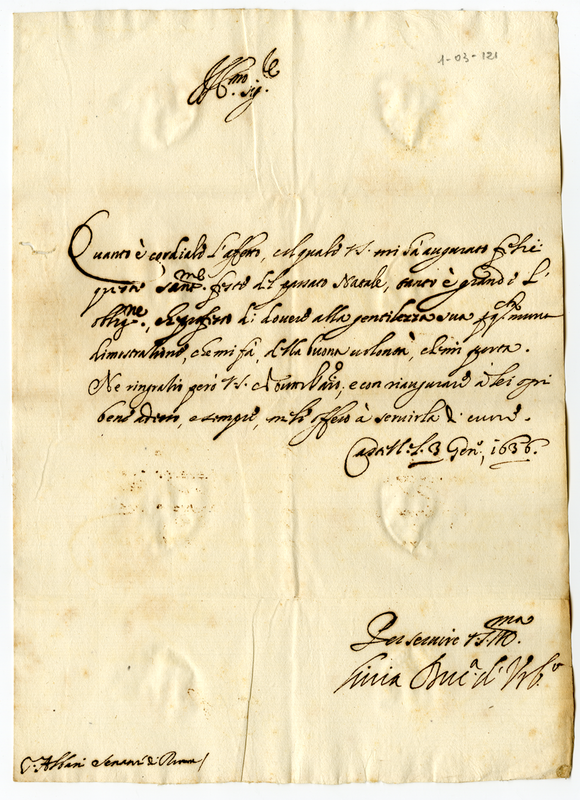 1-03-121
Ill.mo sig.re
Quanto è cordiale l'affetto, col quale V.S. mi hà augurato felici
queste sant.me feste del passato Natale, tanto è grande l'
oblig.ne, che professo di dovere alla gentilezza sua per
dimostratione, che mi fà, della buona volontà, che mi porta.
Ne ringratio però V.S. e con riaugurare à lei ogni
bene adesso, e sempre, me le offero à servirla di cuore.
Castell. L. 3 Gen.o, 1636.
Per servire V.S. Ill.ma
Livia Duc.a d' Urb.o
S.r Albani Senator di Roma